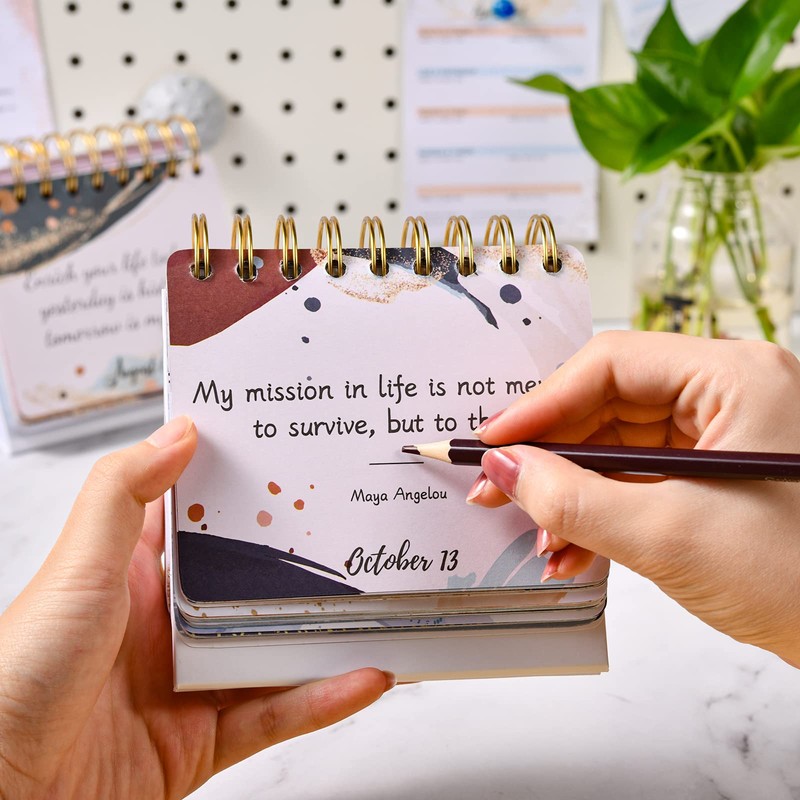 Enrich your life
yesterday is
tomorrow is
August
My mission in life is not
to survive, but to
Maya Angelou
October 13